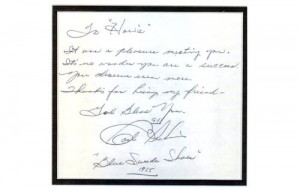 To "Howie"
It was a pleasure meeting you.
It's no wonder you are a success
You deserve even more.
Thanks for being my friend.
God Bless You.
Carl Perkins
"Blue Suede Shoes"
1955